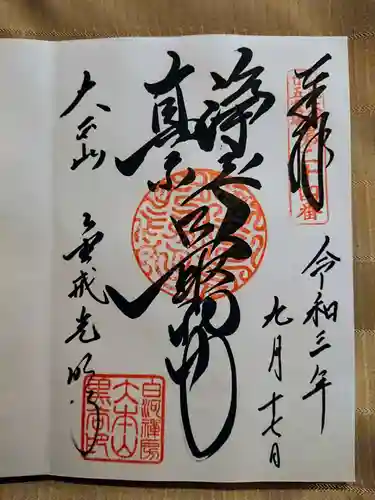 奉拝
令和三年
九月十七日
浄土
真宗
最初門
大本山
金戒光明寺
白河禅房
大本山
黒谷